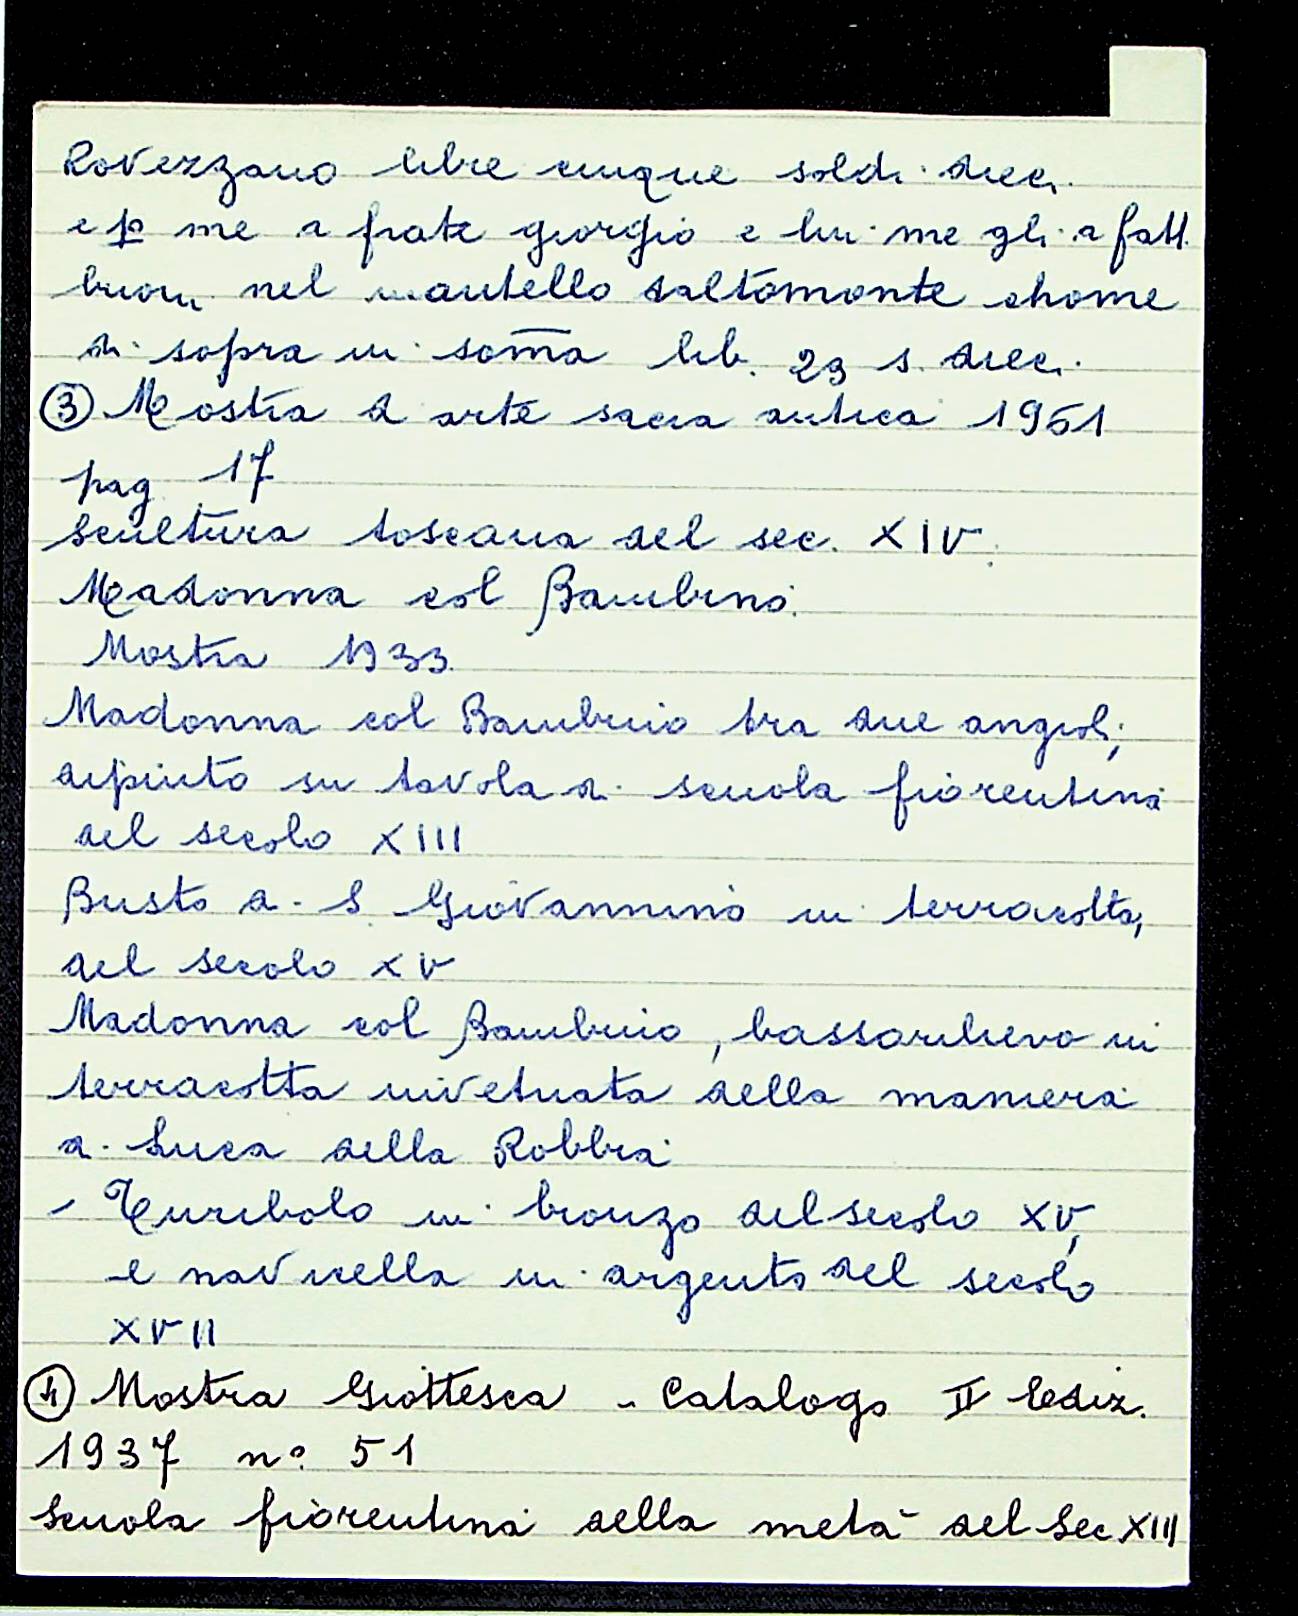 Rovezzano libre cinque soldi dieci
e po me a frate giorgio e lui me gli a fatt.
buoni nel mantello saltamonte chome
di sopra in som̅a lib. 23 s. dieci.
③ Mostra d arte sacra antica 1951
pag 17
Scultura toscana del sec. XIV.
Madonna col Bambino.
Mostra 1933.
Madonna col Bambino tra due angioli,
dipinto su tavola di scuola fiorentina
del secolo XIII
Busto di S. Giovannino in terracotta,
del secolo XV
Madonna col Bambino, bassorilievo in
terracotta invetriata della maniera
di Luca della Robbia
- Turibolo in bronzo del secolo XV,
e navicella in argento del secolo
XVII
④ Mostra Giottesca - Catalogo II Ediz.
1937 n° 51
Scuola fiorentina della metà del Sec. XIII